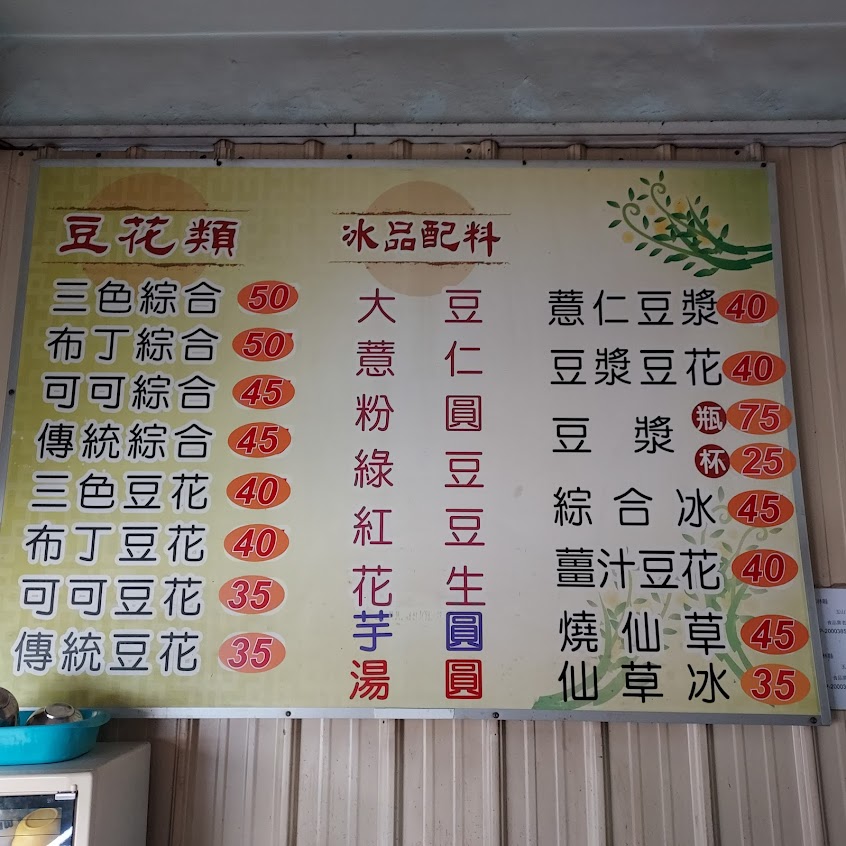 豆花類
三色綜合 50
布丁綜合 50
可可綜合 45
傳統綜合 45
三色豆花 40
布丁豆花 40
可可豆花 35
傳統豆花 35
冰品配料
大豆
薏仁
粉圓
綠豆
紅豆
花生
芋圓
湯圓
薏仁豆漿 40
豆漿豆花 40
豆漿 瓶 75
杯 25
綜合冰 45
薑汁豆花 40
燒仙草 45
仙草冰 35